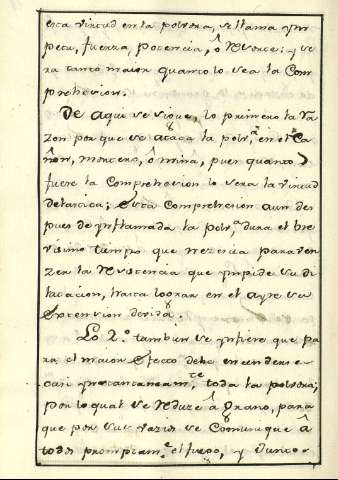 esta virtud en la polvora, se llama ym
petu, fuerza, potencia, ô resorte: y se
ra tanto maior quanto lo sea la Com
prehension.
De aqui se sigue, lo primero la ra
zon por que se ataca la polv.ª en el Ca
ñon, mortero, ô mina, pues quanto
fuere la Comprehension lo sera la virtud
elastica; esta Comprehension aun des
pues de ynflamada la polv.ª dura el bre
visimo tiempo que necesita para ven
zer la resistencia que ympide su di
latacion, hasta lograr en el ayre su
Extension devida.
Lo 2.º tambien se ynfiere que pa
ra el maior efecto debe encenderse
casi ynstantaneam.te toda la polvora;
por lo qual se reduze â grano, para
que por sus vazios se Comunique â
todos promptam.te el fuego, y juntos